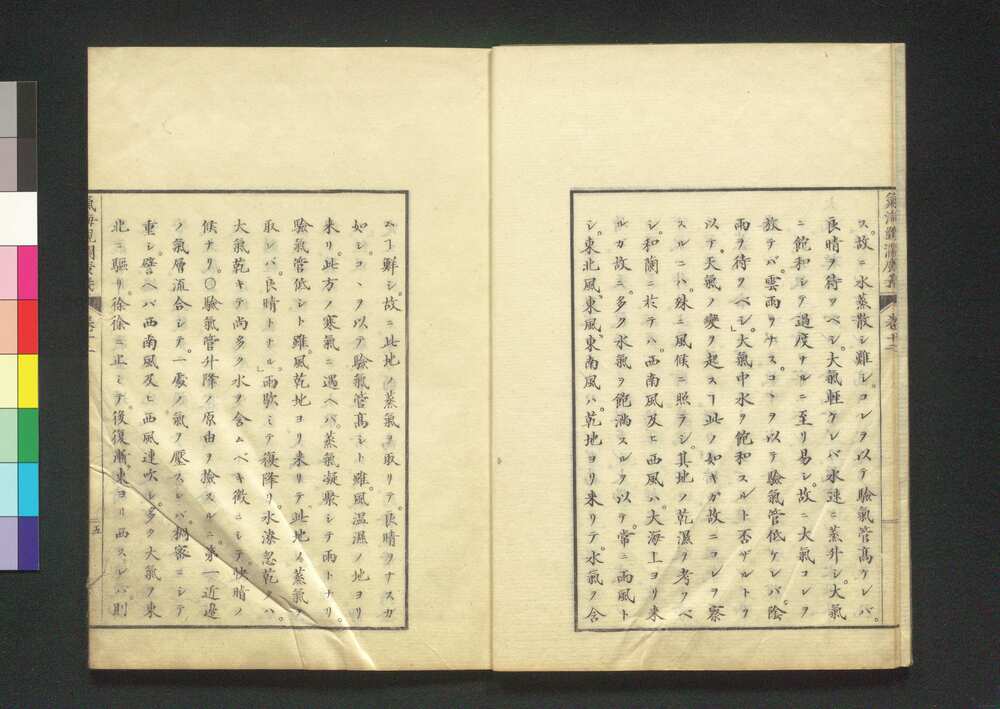 氣海觀瀾廣義 卷十二
ス。故ニ水蒸散シ難シ。コレヲ以テ驗氣管高ケレバ。
良晴ヲ待ツベシ。大氣輕ケレバ水速ニ蒸升シ。大氣
ニ飽和シテ過度ナルニ至リ易シ。故ニ大氣コレヲ
放テバ。雲雨ヲナス。コヽヲ以テ驗氣管低ケレバ。陰
雨ヲ待ツベシ」大氣中水ヲ飽和スルト否ザルトヲ
以テ。天氣ノ變ヲ起スヿ此ノ如キガ故ニコレヲ察
スルニハ。殊ニ風候ニ照テシ。其地ノ乾濕ヲ考フベ
シ。和蘭ニ於テハ。西南風及ヒ西風ハ。大海上ヨリ來
ルガ故ニ。多ク水氣ヲ飽滿スルヲ以テ。常ニ雨風ト
シ。東北風、東風、東南風ハ。乾地ヨリ來リテ。水氣ヲ含
ムヿ鮮シ。故ニ此地ノ蒸氣ヲ取リテ。良晴ヲナスガ
如シ。コヽヲ以テ驗氣管高シト雖。風温濕ノ地ヨリ
來リ。此方ノ寒氣ニ遇ヘバ。蒸氣凝聚シテ雨トナリ。
驗氣管低シト雖。風乾地ヨリ來リテ。此地ノ蒸氣ヲ
取レバ。良晴トナル」雨歇ミテ復降リ。水潦忽乾クハ。
大氣乾キテ尚多ク水ヲ含ムベキ徵ニシテ快晴ノ
候ナリ。〇驗氣管升降ノ原由ヲ撿スルニ。第一近邊
ノ氣層流合シテ。一處ノ氣ヲ壓スレバ。稠密ニシテ
重シ。譬ヘバ西南風及ヒ西風連吹シ。多ク大氣ヲ東
北ニ驅リ。徐徐ニ止ミテ。後復漸ク東ヨリ西スレバ。則
氣海觀瀾廣義 卷十二
五